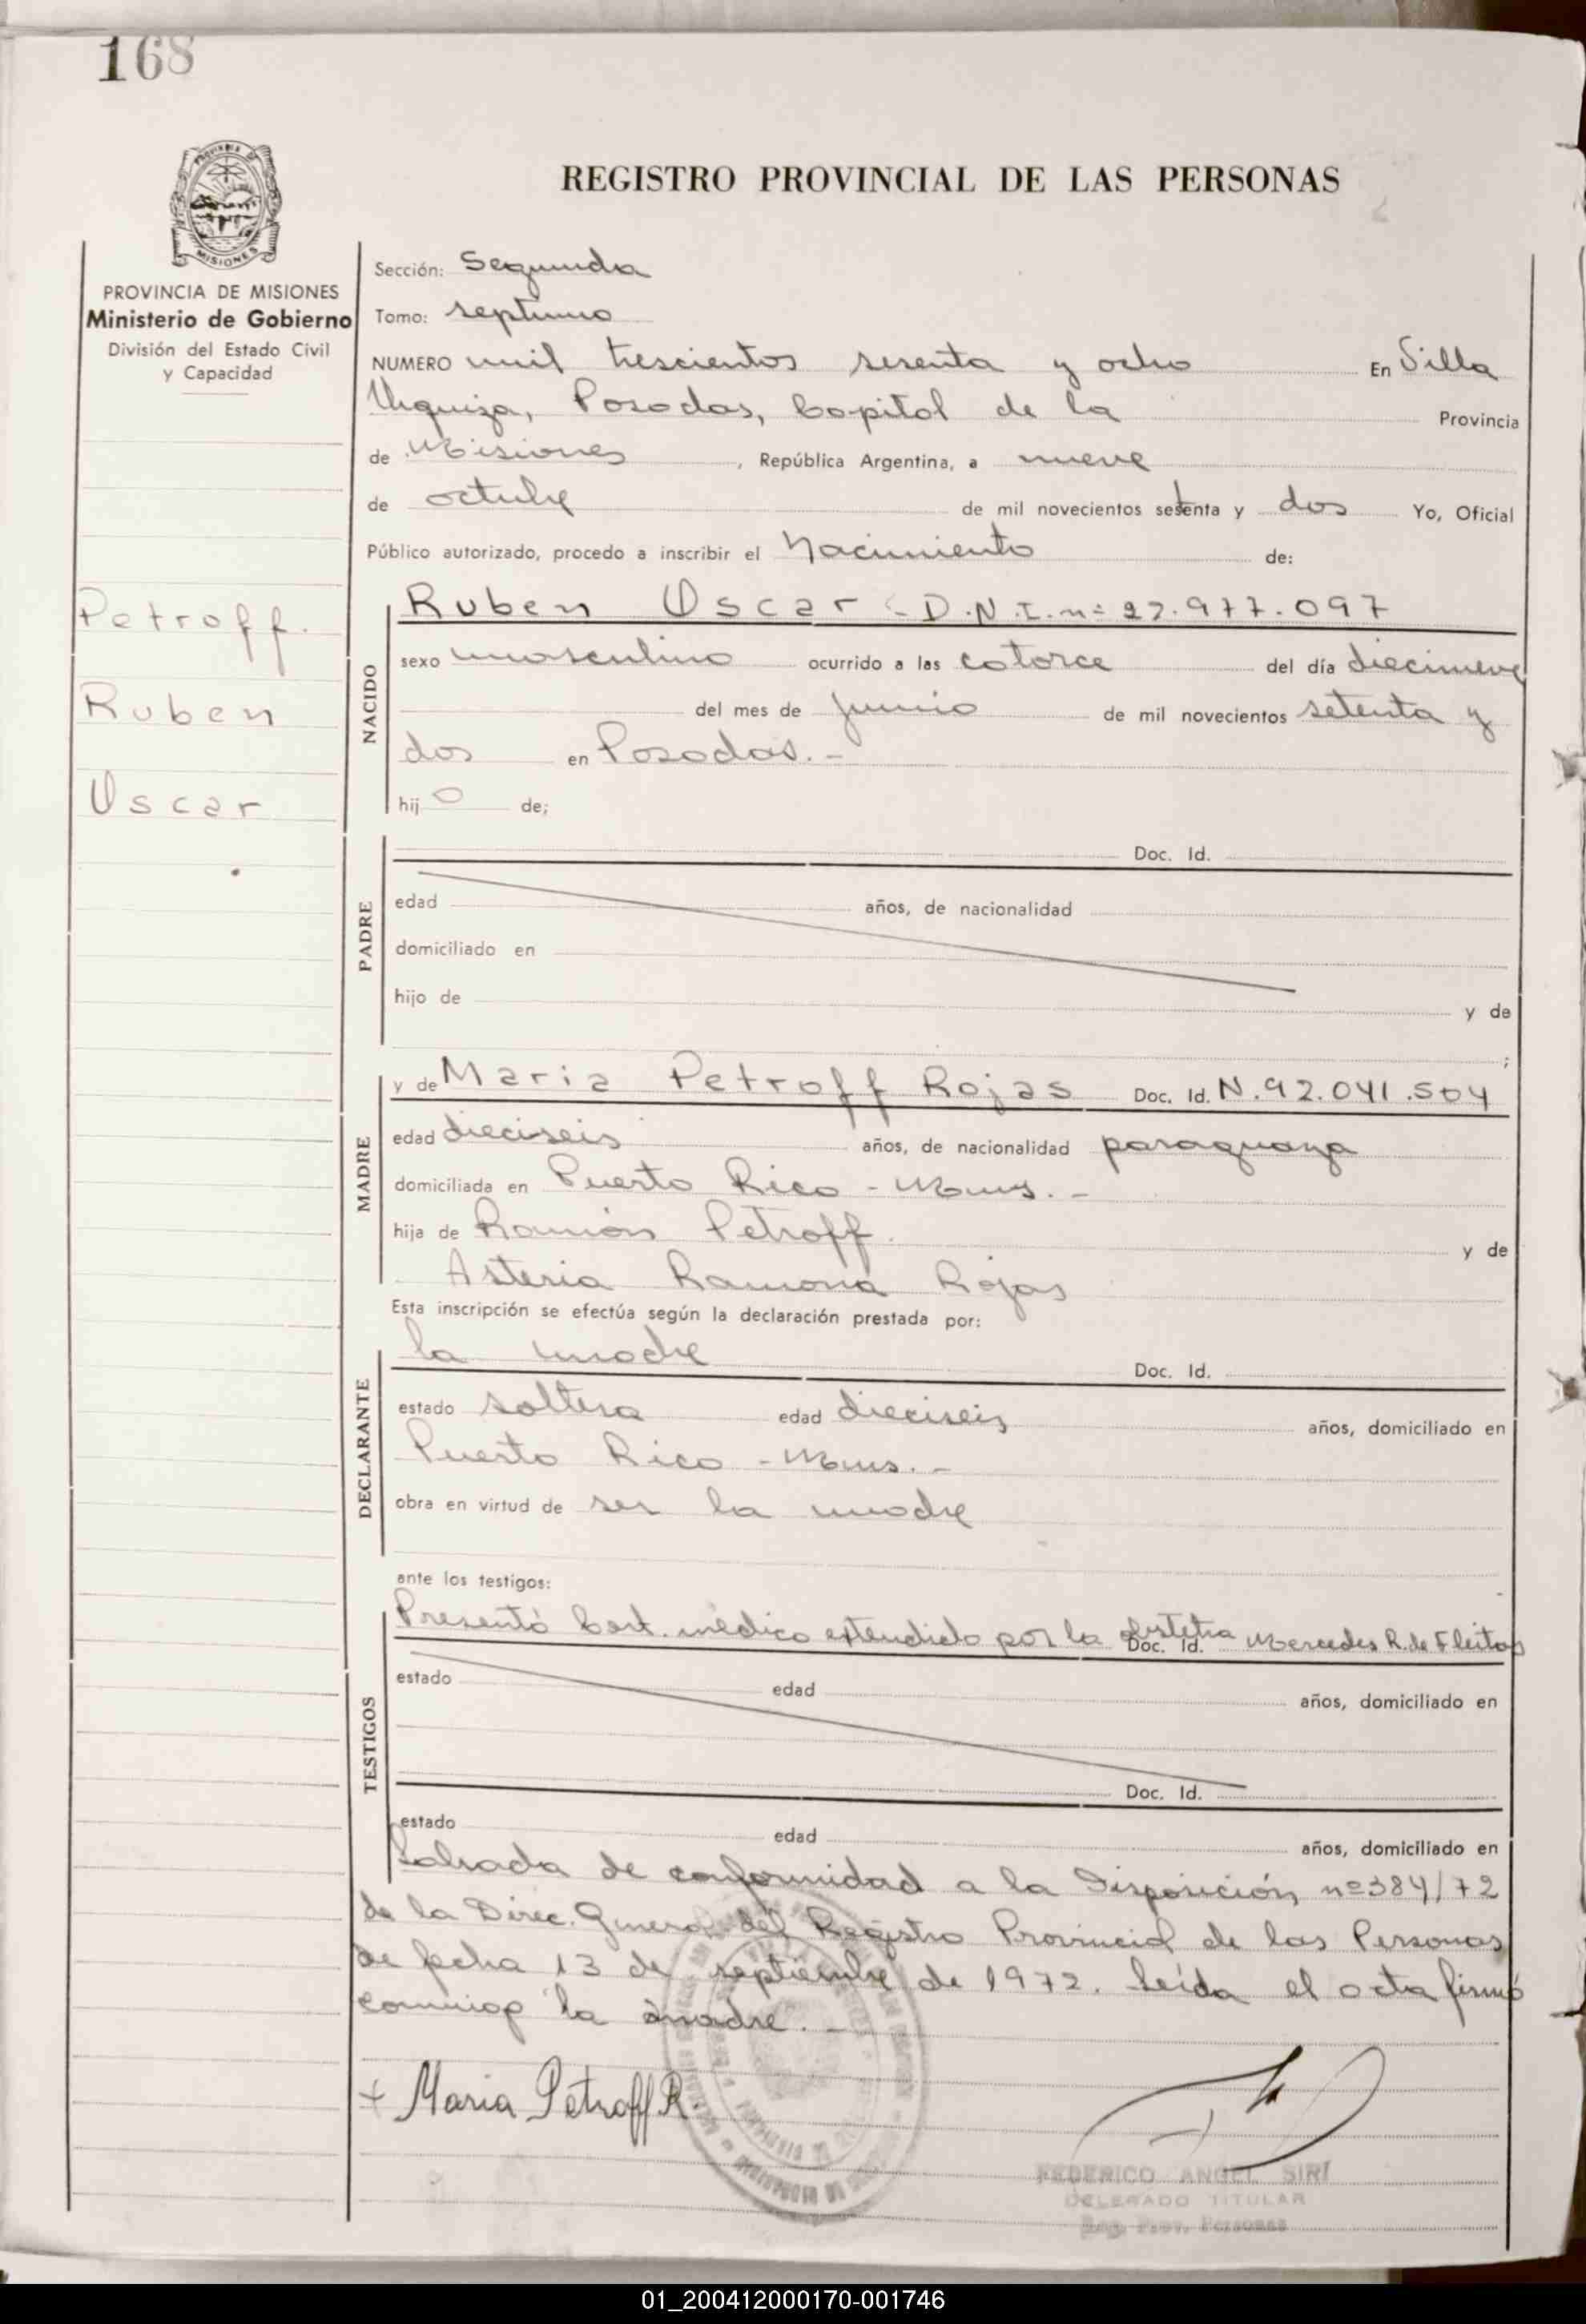 168
REGISTRO PROVINCIAL DE LAS PERSONAS
MISIONES
PROVINCIA DE MISIONES
Ministerio de Gobierno
División del Estado Civil
y Capacidad
Sección: Segunda
Tomo: septimo
NUMERO mil trescientos sesenta y ocho En Villa
Urquiza, Posadas, Capital de la Provincia
de Misiones, República Argentina, a nueve
de octubre de mil novecientos setenta y dos Yo, Oficial
Público autorizado, procedo a inscribir el Nacimiento de:
Petroff.
Ruben
Oscar
NACIDO
Ruben Oscar - D.N.I. nº 27.977.097
sexo masculino ocurrido a las catorce del día diecinueve
del mes de junio de mil novecientos setenta y
dos en Posadas.-
hijo de;
PADRE
Doc. Id.
edad años, de nacionalidad
domiciliado en
hijo de y de
;
MADRE
y de Maria Petroff Rojas Doc. Id. N.92.041.504
edad dieciseis años, de nacionalidad paraguaya
domiciliada en Puerto Rico - Mnes.-
hija de Ramón Petroff. y de
Asteria Ramona Rojas
Esta inscripción se efectúa según la declaración prestada por:
DECLARANTE
la madre Doc. Id.
estado soltera edad dieciseis años, domiciliado en
Puerto Rico - Mnes.-
obra en virtud de ser la madre
ante los testigos:
TESTIGOS
Presentó Cert. médico extendido por la obstetra Doc. Id. Mercedes R. de Fleitas
estado edad años, domiciliado en
Doc. Id.
estado edad años, domiciliado en
Labrada de conformidad a la Disposición nº 384/72
de la Direc. General del Registro Provincial de las Personas
de fecha 13 de septiembre de 1972. Leída el acta firmó
conmigo la madre.-
+ Maria Petroff R.
FEDERICO ANGEL SIRI
DELEGADO TITULAR
Reg. Prov. Personas
01_200412000170-001746